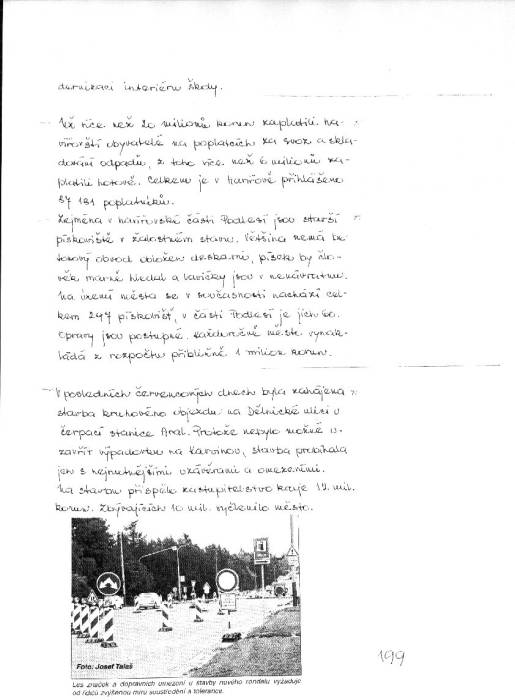 dernizaci interiéru školy.
Již více než 20 milionů korun zaplatili ha-
vířovští obyvatelé na poplatcích za svoz a skla-
dování odpadů, z toho více než 6 milionů za-
platili hotově. Celkem je v Havířově přihlášeno
87 181 poplatníků.
Zejména v havířovské části Podlesí jsou starší
pískoviště v žalostném stavu. Většina nemá be-
tonový obvod obložen deskami, písek by člo-
věk marně hledal a lavičky jsou v nenávratnu.
Na území města se v současnosti nachází cel-
kem 247 pískovišť, v části Podlesí je jich 60.
Opravy jsou postupné. Každoročně město vynak-
ládá z rozpočtu přibližně 1 milion korun.
V posledních červencových dnech byla zahájena
stavba kruhového objezdu na Dělnické ulici u
čerpací stanice Aral. Protože nebylo možné u-
zavřít výpadovku na Karvinou, stavba probíhala
jen s nejnutnějšími uzávěrami a omezeními.
Na stavbu přispělo zastupitelstvo kraje 12 mil.
korun. Zbývajících 10 mil. vyčlenilo město.
Foto: Josef Talaš
Les značek a dopravních omezení u stavby nového rondelu vyžaduje
od řidičů zvýšenou míru soustředění a tolerance.
199